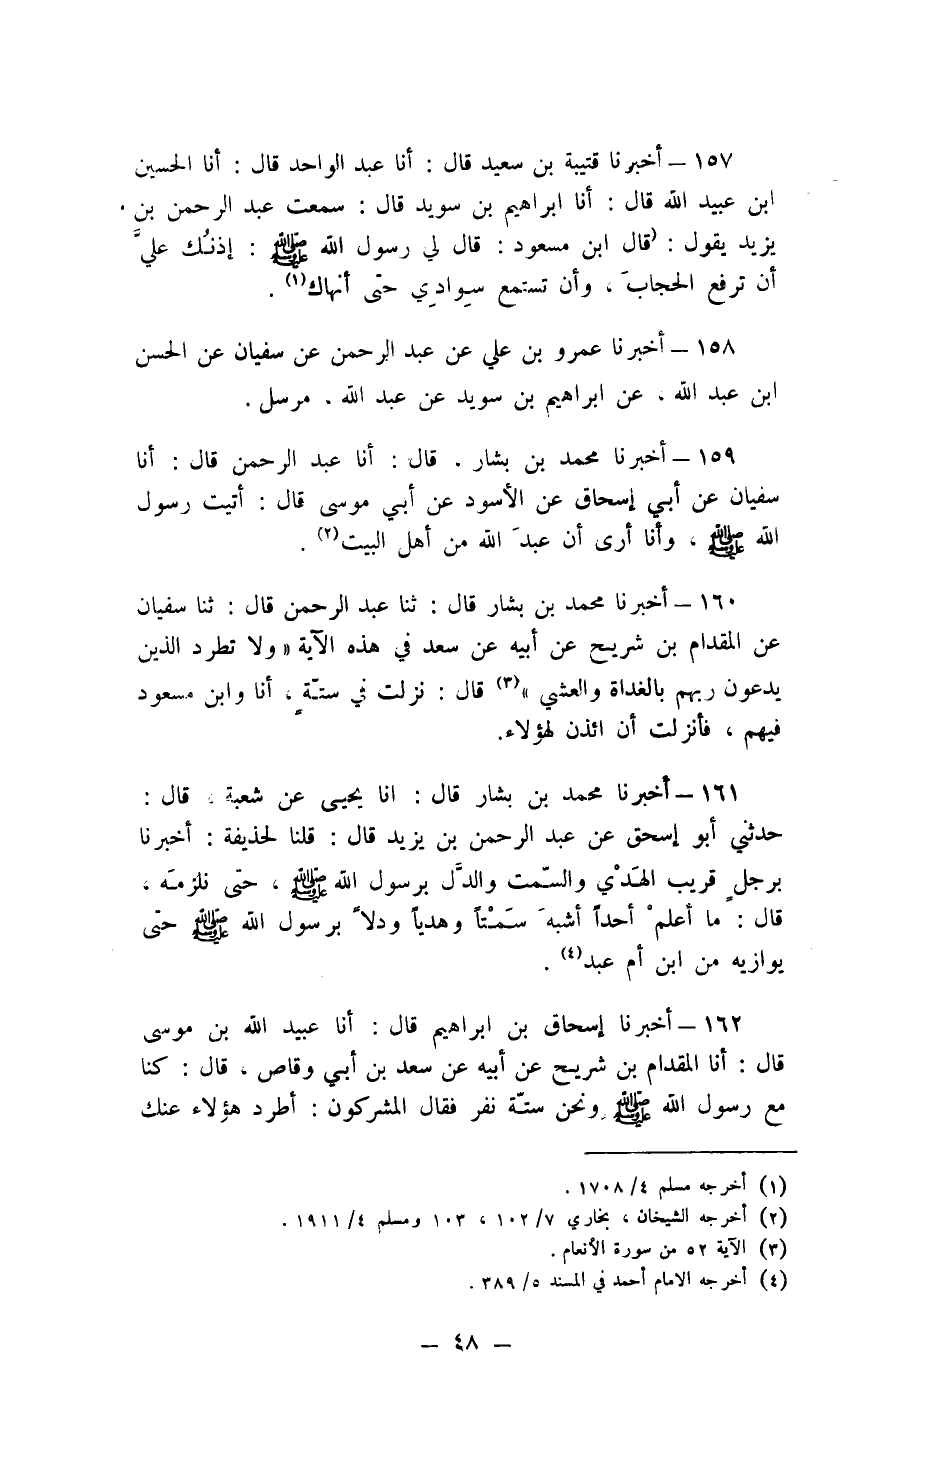 ١٥٧ ــ أخبرنا قتيبة بن سعيد قال : أنا عبد الواحد قال : أنا الحسين
ابن عبيد الله قال : أنا ابراهيم بن سويد قال : سمعت عبد الرحمن بن
يزيد يقول : (قال ابن مسعود : قال لي رسول الله ﷺ : إذنُك عليَّ
أن ترفع الحجابَ ، وأن تستمع سِوادِي حتى أنهاك(١) .
١٥٨ ــ أخبرنا عمرو بن علي عن عبد الرحمن عن سفيان عن الحسن
ابن عبد الله ، عن ابراهيم بن سويد عن عبد الله . مرسل .
١٥٩ ــ أخبرنا محمد بن بشار . قال : أنا عبد الرحمن قال : أنا
سفيان عن أبي إسحاق عن الأسود عن أبي موسى قال : أتيت رسول
الله ﷺ ، وأنا أرى أن عبدَ الله من أهل البيت(٢) .
١٦٠ ــ أخبرنا محمد بن بشار قال : ثنا عبد الرحمن قال : ثنا سفيان
عن المقدام بن شريح عن أبيه عن سعد في هذه الآية « ولا تطرد الذين
يدعون ربهم بالغداة والعشي »(٣) قال : نزلت في ستّةٍ ، أنا وابن مسعود
فيهم ، فأنزلت أن ائذن لهؤلاء.
١٦١ ــ أخبرنا محمد بن بشار قال : انا يحيى عن شعبة ، قال :
حدثني أبو إسحق عن عبد الرحمن بن يزيد قال : قلنا لحذيفة : أخبرنا
برجلٍ قريب الهَدْي والسّمت والدَّل برسول الله ﷺ ، حتى نلزمَه ،
قال : ما أعلمْ أحداً أشبهَ سَمْتاً وهدياً ودلاً برسول الله ﷺ حتى
يوازيه من ابن أم عبد(٤) .
١٦٢ ــ أخبرنا إسحاق بن ابراهيم قال : أنا عبيد الله بن موسى
قال : أنا المقدام بن شريح عن أبيه عن سعد بن أبي وقاص ، قال : كنا
مع رسول الله ﷺ ونحن ستّة نفر فقال المشركون : أطرد هؤلاء عنك
(١) أخرجه مسلم ٤/ ١٧٠٨ .
(٢) أخرجه الشيخان ، بخاري ٧/ ١٠٢ ، ١٠٣ ومسلم ٤/ ١٩١١ .
(٣) الآية ٥٢ من سورة الأنعام .
(٤) أخرجه الامام أحمد في المسند ٥/ ٣٨٩ .
ــ ٤٨ ــ